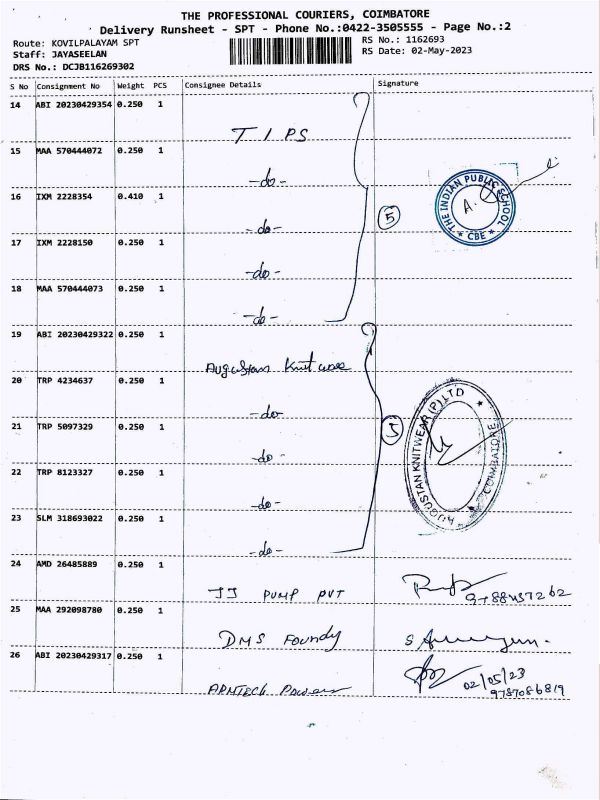 THE PROFESSIONAL COURIERS, COIMBATORE
Delivery Runsheet - SPT - Phone No.:0422-3505555 - Page No.:2
Route: KOVILPALAYAM SPT
Staff: JAYASEELAN
DRS No.: DCJB116269302
RS No.: 1162693
RS Date: 02-May-2023
S No Consignment No Weight PCS Consignee Details Signature
14 ABI 20230429354 0.250 1
TIPS
15 MAA 570444072 0.250 1
-do-
16 IXM 2228354 0.410 1
-do-
5
THE INDIAN PUBLIC SCHOOL
* CBE *
A.
17 IXM 2228150 0.250 1
-do-
18 MAA 570444073 0.250 1
-do-
19 ABI 20230429322 0.250 1
Augustan Knitwear
20 TRP 4234637 0.250 1
-do-
21 TRP 5097329 0.250 1
-do-
5
AUGUSTAN KNITWEAR (P) LTD
* COIMBATORE *
22 TRP 8123327 0.250 1
-do-
23 SLM 318693022 0.250 1
-do-
24 AMD 26485889 0.250 1
JJ PUMP PVT
25 MAA 292098780 0.250 1
DMS Foundy
26 ABI 20230429317 0.250 1
02/05/23
9787086819